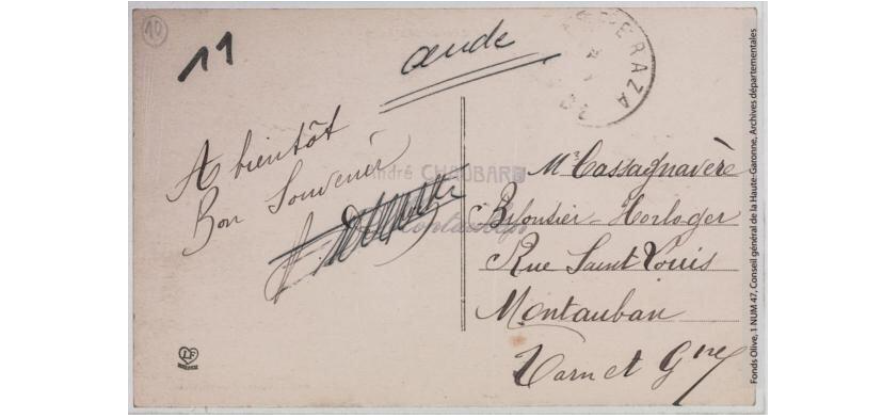 10
11
aude
ERAZA
A bientôt
Bon Souvenir
André CHAUBARD
Montauban
Mr Cassagnavère
Bijoutier-Horloger
Rue Saint Louis
Montauban
Tarn et Gne
LF
Fonds Olive, 1 NUM 47, Conseil général de la Haute-Garonne, Archives départementales